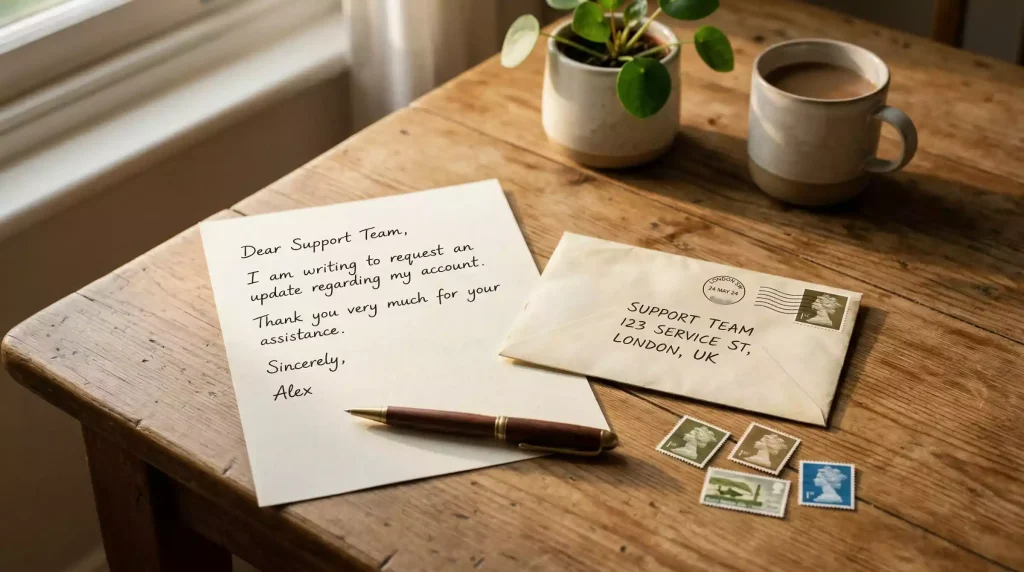 Dear Support Team,
I am writing to request an
update regarding my account.
Thank you very much for your
assistance.
Sincerely,
Alex
LONDON SW
24 MAY 24
SUPPORT TEAM
123 SERVICE ST,
LONDON, UK